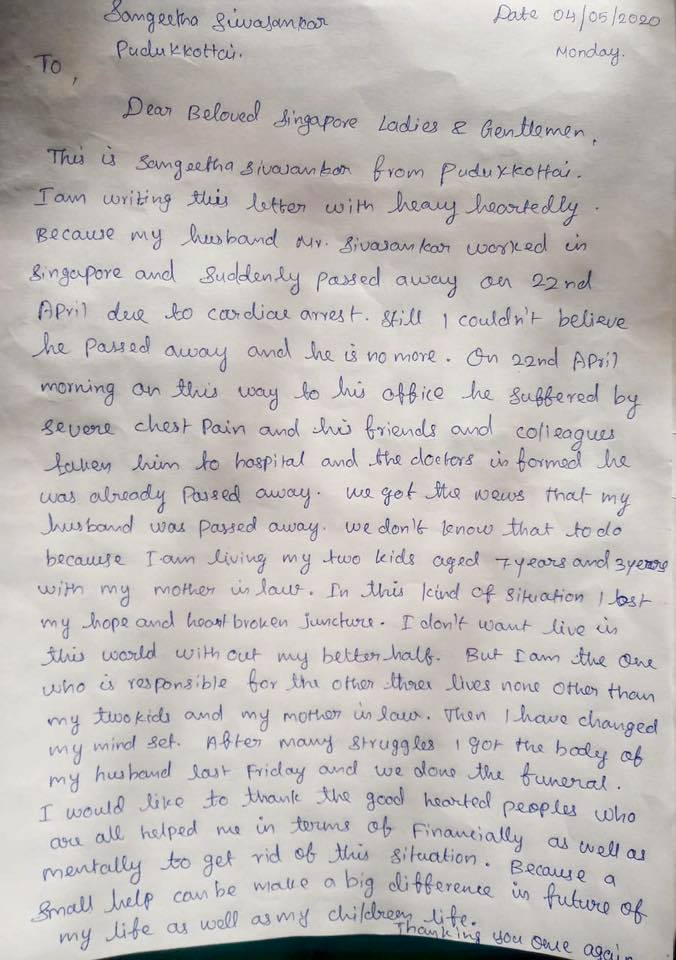 Sangeetha Sivasankar
Date 04/05/2020
Pudukkottai.
Monday.
To,
Dear Beloved Singapore Ladies & Gentlemen,
This is Sangeetha Sivasankar from Pudukkottai.
I am writing this letter with heavy heartedly.
Because my husband Mr. Sivasankar worked in
Singapore and suddenly passed away on 22nd
April due to cardiac arrest. Still I couldn't believe
he passed away and he is no more. On 22nd April
morning on this way to his office he suffered by
severe chest pain and his friends and colleagues
taken him to hospital and the doctors informed he
was already passed away. We got the news that my
husband was passed away. We don't know that to do
because I am living my two kids aged 7 years and 3 years
with my mother in law. In this kind of situation I lost
my hope and heart broken juncture. I don't want live in
this world with out my better half. But I am the one
who is responsible for the other three lives none other than
my two kids and my mother in law. Then I have changed
my mind set. After many struggles I got the body of
my husband last Friday and we done the funeral.
I would like to thank the good hearted peoples who
are all helped me in terms of Financially as well as
mentally to get rid of this situation. Because a
small help can be make a big difference in future of
my life as well as my children life.
Thanking you once again